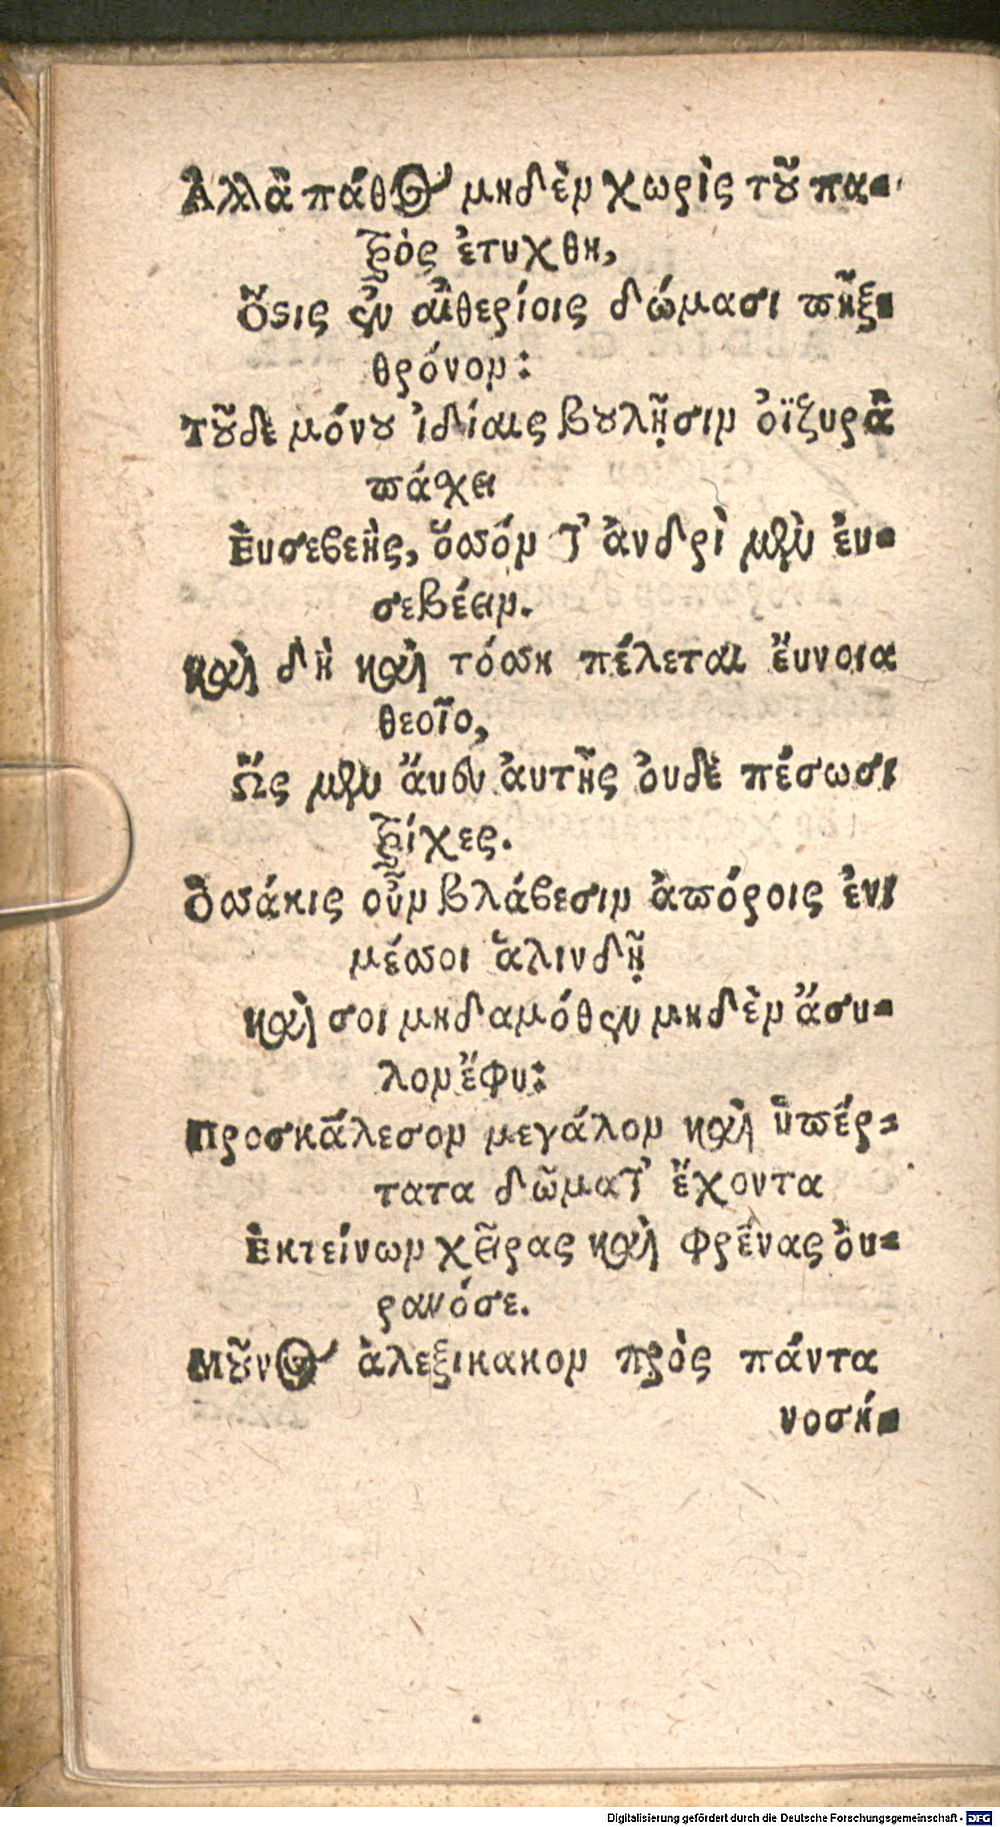 Ἀλλὰ πάθος μηδὲν χωρὶς τοῦ πα-
τρὸς ἐτύχθη,
Ὅστις ἐν αἰθερίοις δώμασι πῆξε
θρόνον:
Τοῦδε μόνου ἰδίαις βουλῇσιν ὀϊζυρὰ
πάσχει
Ἐυσεβεὴς, ὅσσόν τ' ἀνδρὶ μὲν ἐυ-
σεβέειν.
καὶ δὴ καὶ τόσση πέλεται ἔυνοια
θεοῖο,
Ὥς μὲν ἄυευ ἀυτῆς ὀυδὲ πέσωσι
τρίχες.
Ὁσσάκις οὖν βλάβεσιν ἀπόροις ἐνὶ
μέσσοι ἀλινδῇ
καὶ σοι μηδαμόθεν μηδὲν ἄσυ-
λον ἔφυ:
Προσκάλεσον μεγάλον καὶ ὑπέρ-
τατα δῶματ' ἔχοντα
Ἐκτείνων χεῖρας καὶ φρένας ὀυ-
ρανόσε.
Μοῦνος ἀλεξίκακον πρὸς πάντα
νοσή-
Digitalisierung gefördert durch die Deutsche Forschungsgemeinschaft - DFG